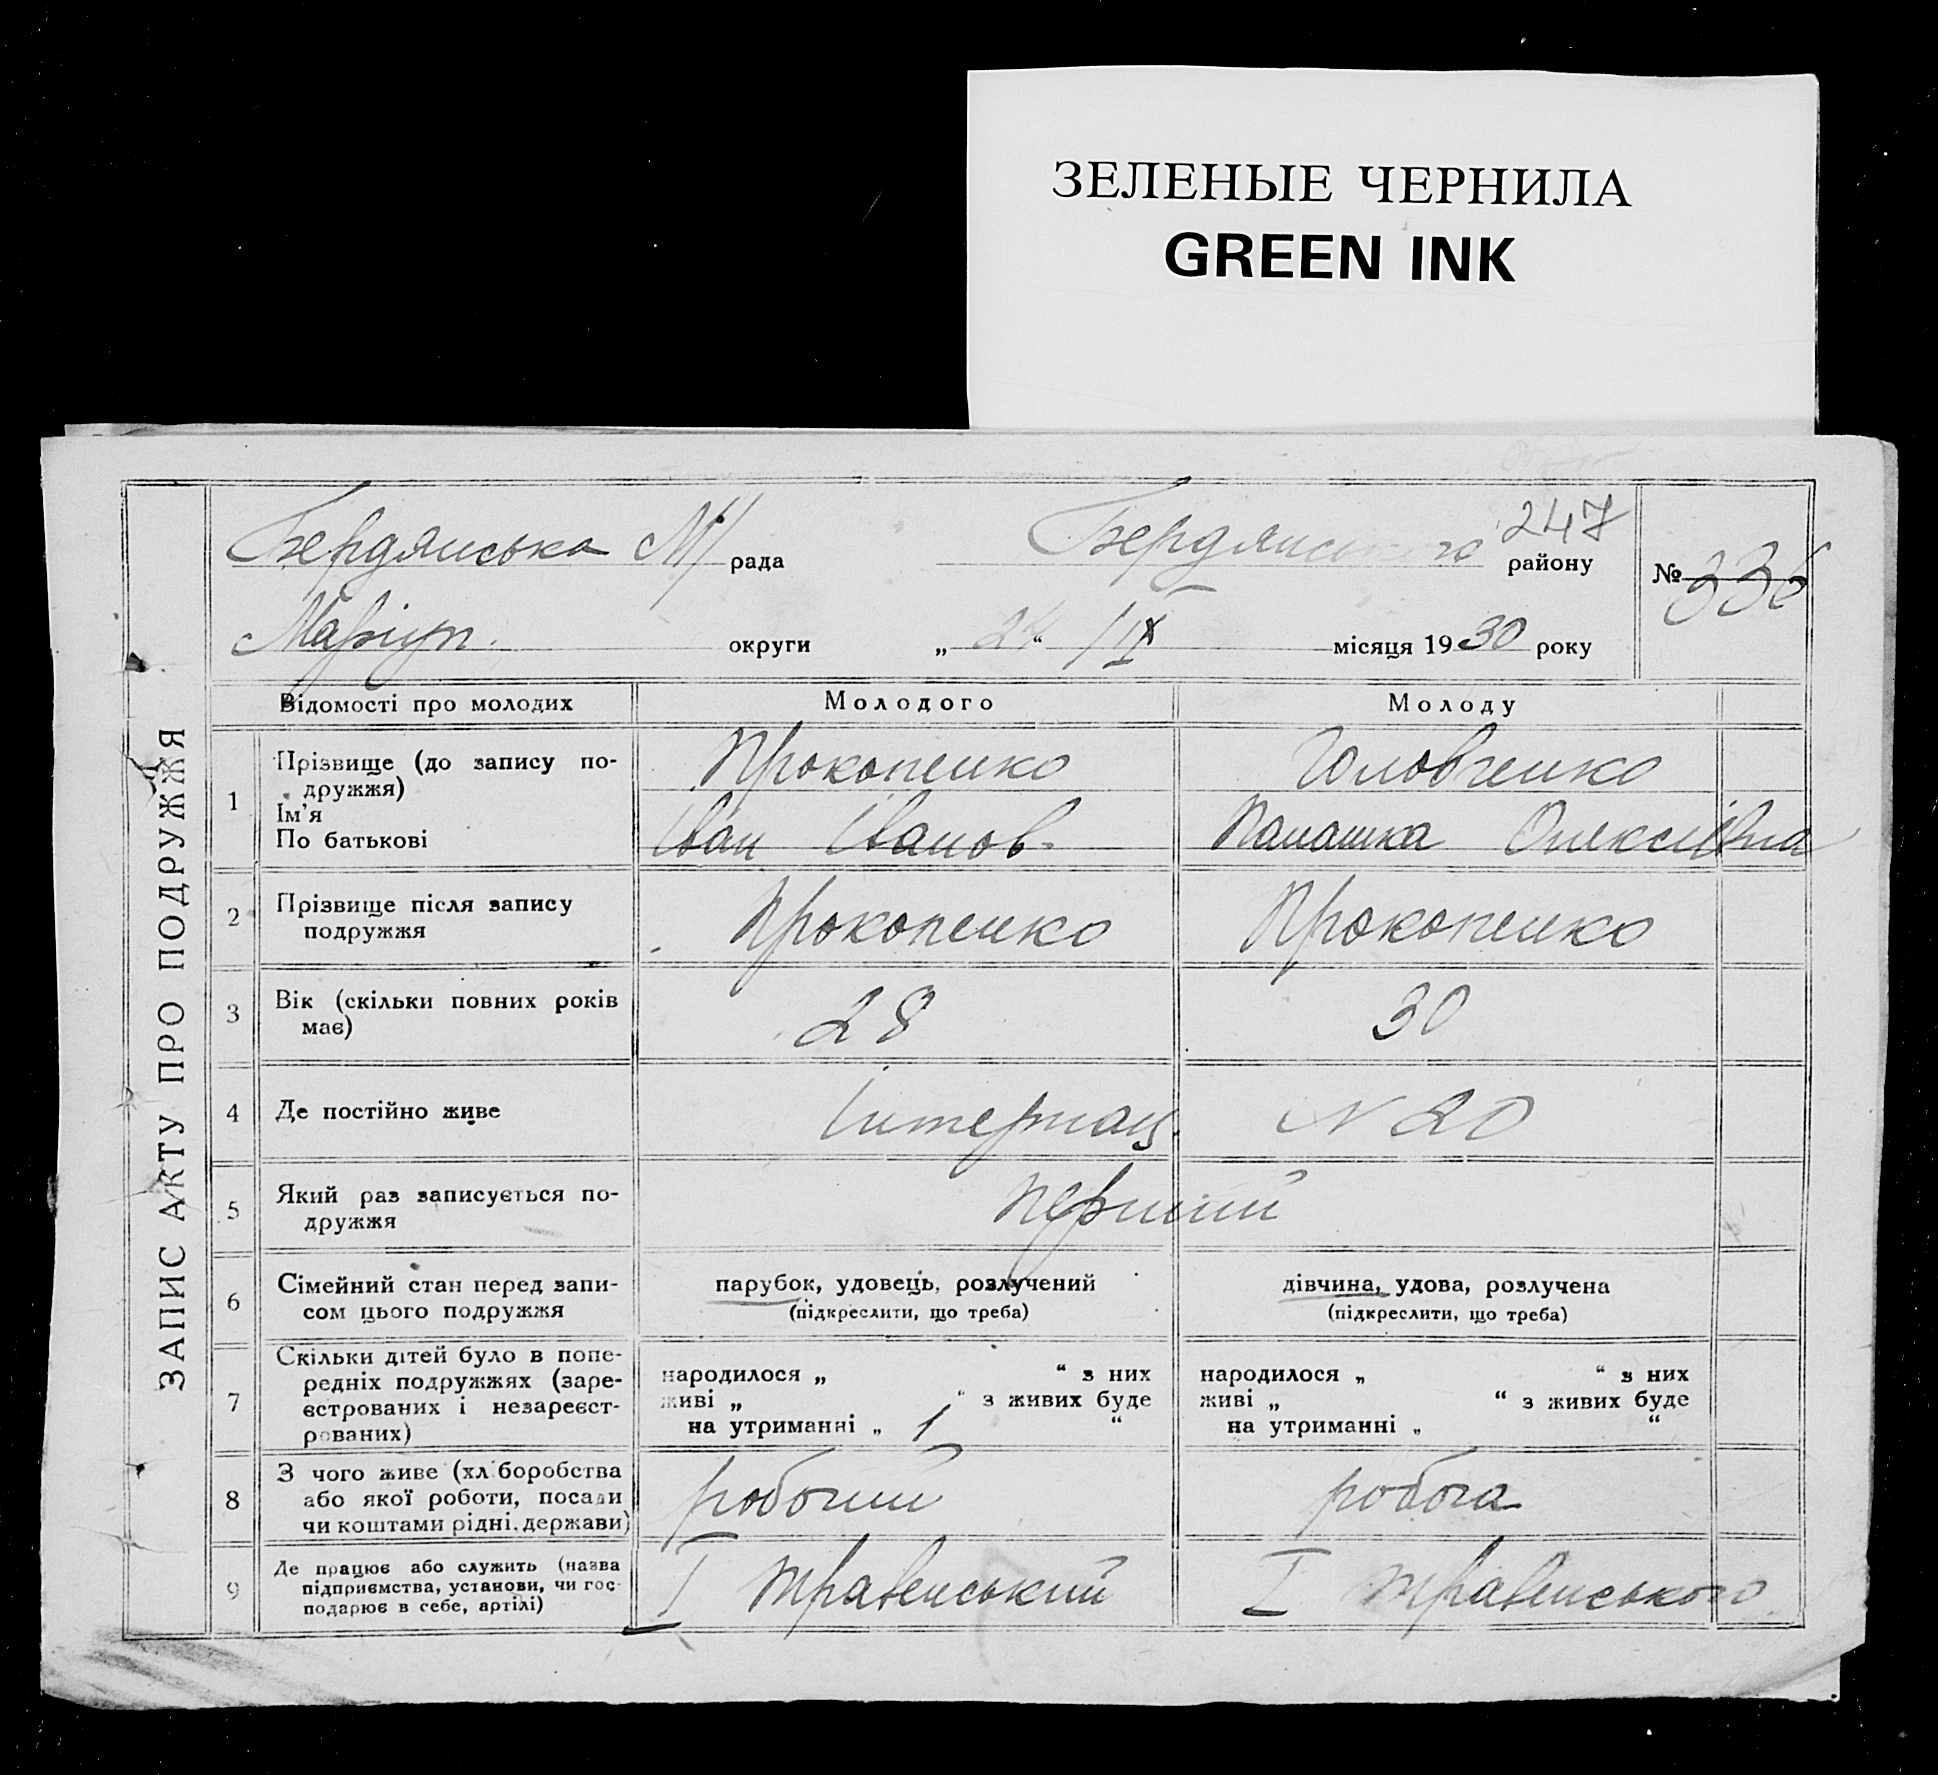 ЗЕЛЕНЫЕ ЧЕРНИЛА
GREEN INK
247
Бердянська М/ рада Бердянського району № 336
Маріуп. округи „ 24 “ / ІХ місяця 1930 року
ЗАПИС АКТУ ПРО ПОДРУЖЖЯ
Відомості про молодих Молодого Молоду
1 Прізвище (до запису по-
дружжя)
Ім'я
По батькові
Прокопенко Головченко
Іван Іванов. Палашка Олексіївна
2 Прізвище після запису
подружжя
Прокопенко Прокопенко
3 Вік (скільки повних років
має)
28 30
4 Де постійно живе Інтернац. N 20
5 Який раз записується по-
дружжя
перший
6 Сімейний стан перед запи-
сом цього подружжя
парубок, удовець, розлучений
(підкреслити, що треба)
дівчина, удова, розлучена
(підкреслити, що треба)
7 Скільки дітей було в попе-
редніх подружжях (заре-
єстрованих і незареєст-
рованих)
народилося „ “ з них
живі „ “ з живих буде
на утриманні „ 1 “
народилося „ “ з них
живі „ “ з живих буде
на утриманні „ “
8 З чого живе (хліборобства
або якої роботи, посади
чи коштами рідні, держави)
робочий робоча
9 Де працює або служить (назва
підприємства, установи, чи гос-
подарює в себе, артілі)
І травенський І травенського